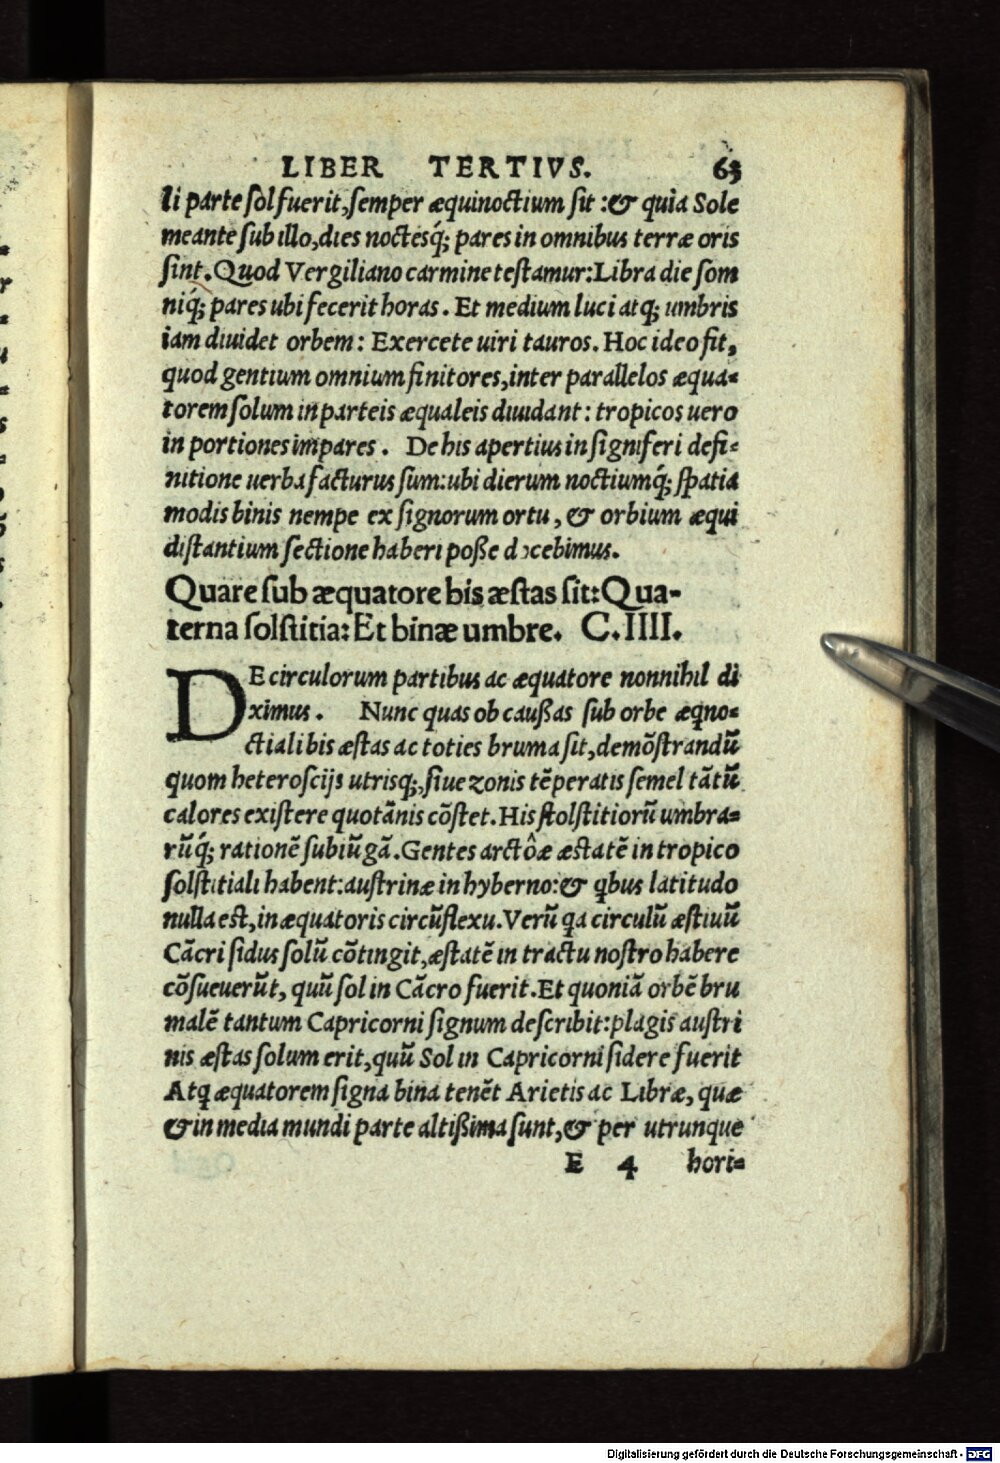 LIBER TERTIVS. 63
li parte sol fuerit, semper æquinoctium sit :& quia Sole
meante sub illo, dies noctesq́; pares in omnibus terræ oris
sint. Quod Vergiliano carmine testamur: Libra die som
niq́; pares ubi fecerit horas. Et medium luci atq; umbris
iam diuidet orbem: Exercete uiri tauros. Hoc ideo fit,
quod gentium omnium finitores, inter parallelos æqua-
torem solum in parteis æqualeis diuidant: tropicos uero
in portiones impares. De his apertius in signiferi defi-
nitione uerba facturus sum: ubi dierum noctiumq́; spatia
modis binis nempe ex signorum ortu, & orbium æqui
distantium sectione haberi posse docebimus.
Quare sub æquatore bis æstas sit: Qua-
terna solstitia: Et binæ umbre. C. IIII.
DE circulorum partibus ac æquatore nonnihil di
ximus. Nunc quas ob caussas sub orbe æqno-
ctiali bis æstas ac toties bruma sit, demōstrandū
quom heteroscijs utrisq;, siue zonis tēperatis semel tātū
calores existere quotānis cōstet. His stolstitiorū umbra-
rūq́; rationē subiūgā. Gentes arctôæ æstatē in tropico
solstitiali habent: austrinæ in hyberno: & qbus latitudo
nulla est, in æquatoris circūflexu. Verū qa circulū æstiuū
Cācri sidus solū cōtingit, æstatē in tractu nostro habere
cōsueuerūt, quū sol in Cācro fuerit. Et quoniā orbē bru
malē tantum Capricorni signum describit: plagis austri
nis æstas solum erit, quū Sol in Capricorni sidere fuerit
Atq æquatorem signa bina tenēt Arietis ac Libræ, quæ
& in media mundi parte altissima sunt, & per utrunque
E 4 hori-
Digitalisierung gefördert durch die Deutsche Forschungsgemeinschaft - DFG